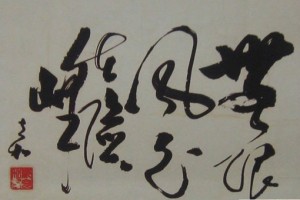 無限
風光
在險
峰